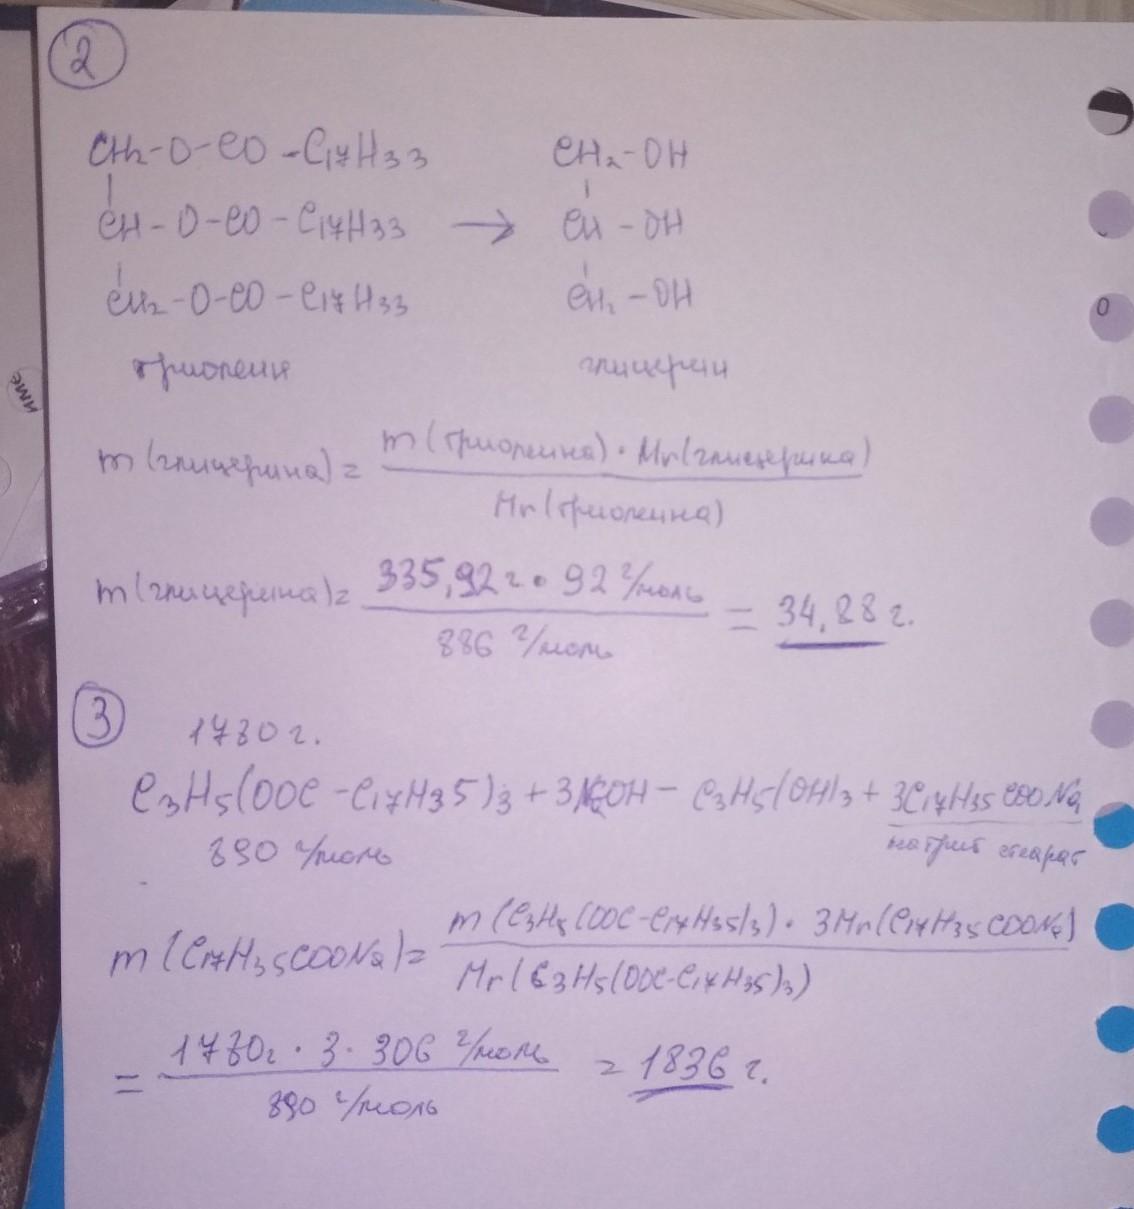 2
CH2-O-CO-C17H33
CH-O-CO-C17H33 → CH-OH
CH2-OH
CH2-O-CO-C17H33
CH2-OH
триолеин
глицерин
m(глицерина)= m(триолеина)·Mr(глицерина)
Mr(триолеина)
m(глицерина)= 335,92г·92 г/моль = 34,88 г.
886 г/моль
3
1780 г.
C3H5(OOC-C17H35)3+3NaOH- C3H5(OH)3+3C17H35COONa
890 г/моль
натрий стеарат
m(C17H35COONa)= m(C3H5(OOC-C17H35)3)·3Mr(C17H35COONa)
Mr(C3H5(OOC-C17H35)3)
= 1780г·3·306 г/моль = 1836 г.
890 г/моль